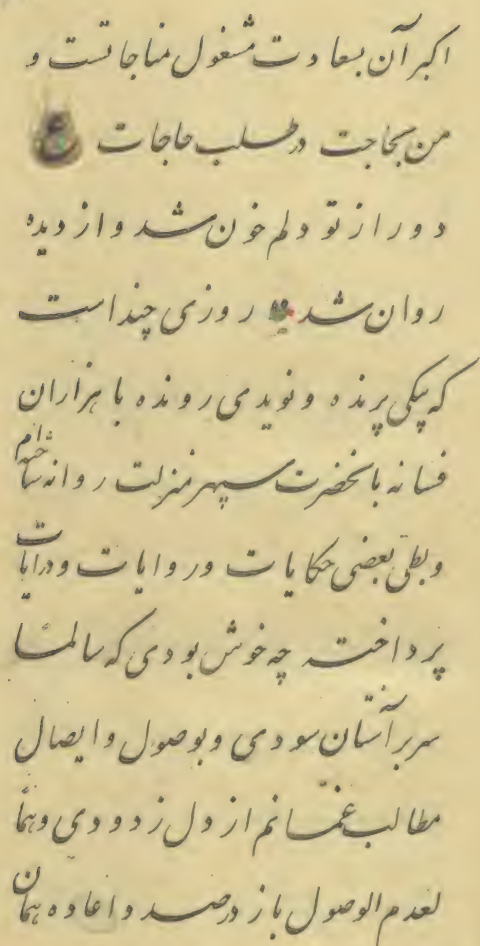 اکبر آن بسعادت مشغول مناجاتست و
من بحاجت در طلب حاجات ع
دور از تو دلم خون شد و از دیده
روان شد روزی چند است
که پیکی پرنده و نویدی رونده با هزاران
فسانه بانحضرت سپهر منزلت روانه ساخته‌ام
و بطی بعضی حکایات و روایات و درایات
پرداخته چه خوش بودی که سالها
سر بر آستان سودی و بوصول و ایصال
مطالب غمانم از دل زدودی و همّا
لعدم الوصول باز در صدد اعاده همان